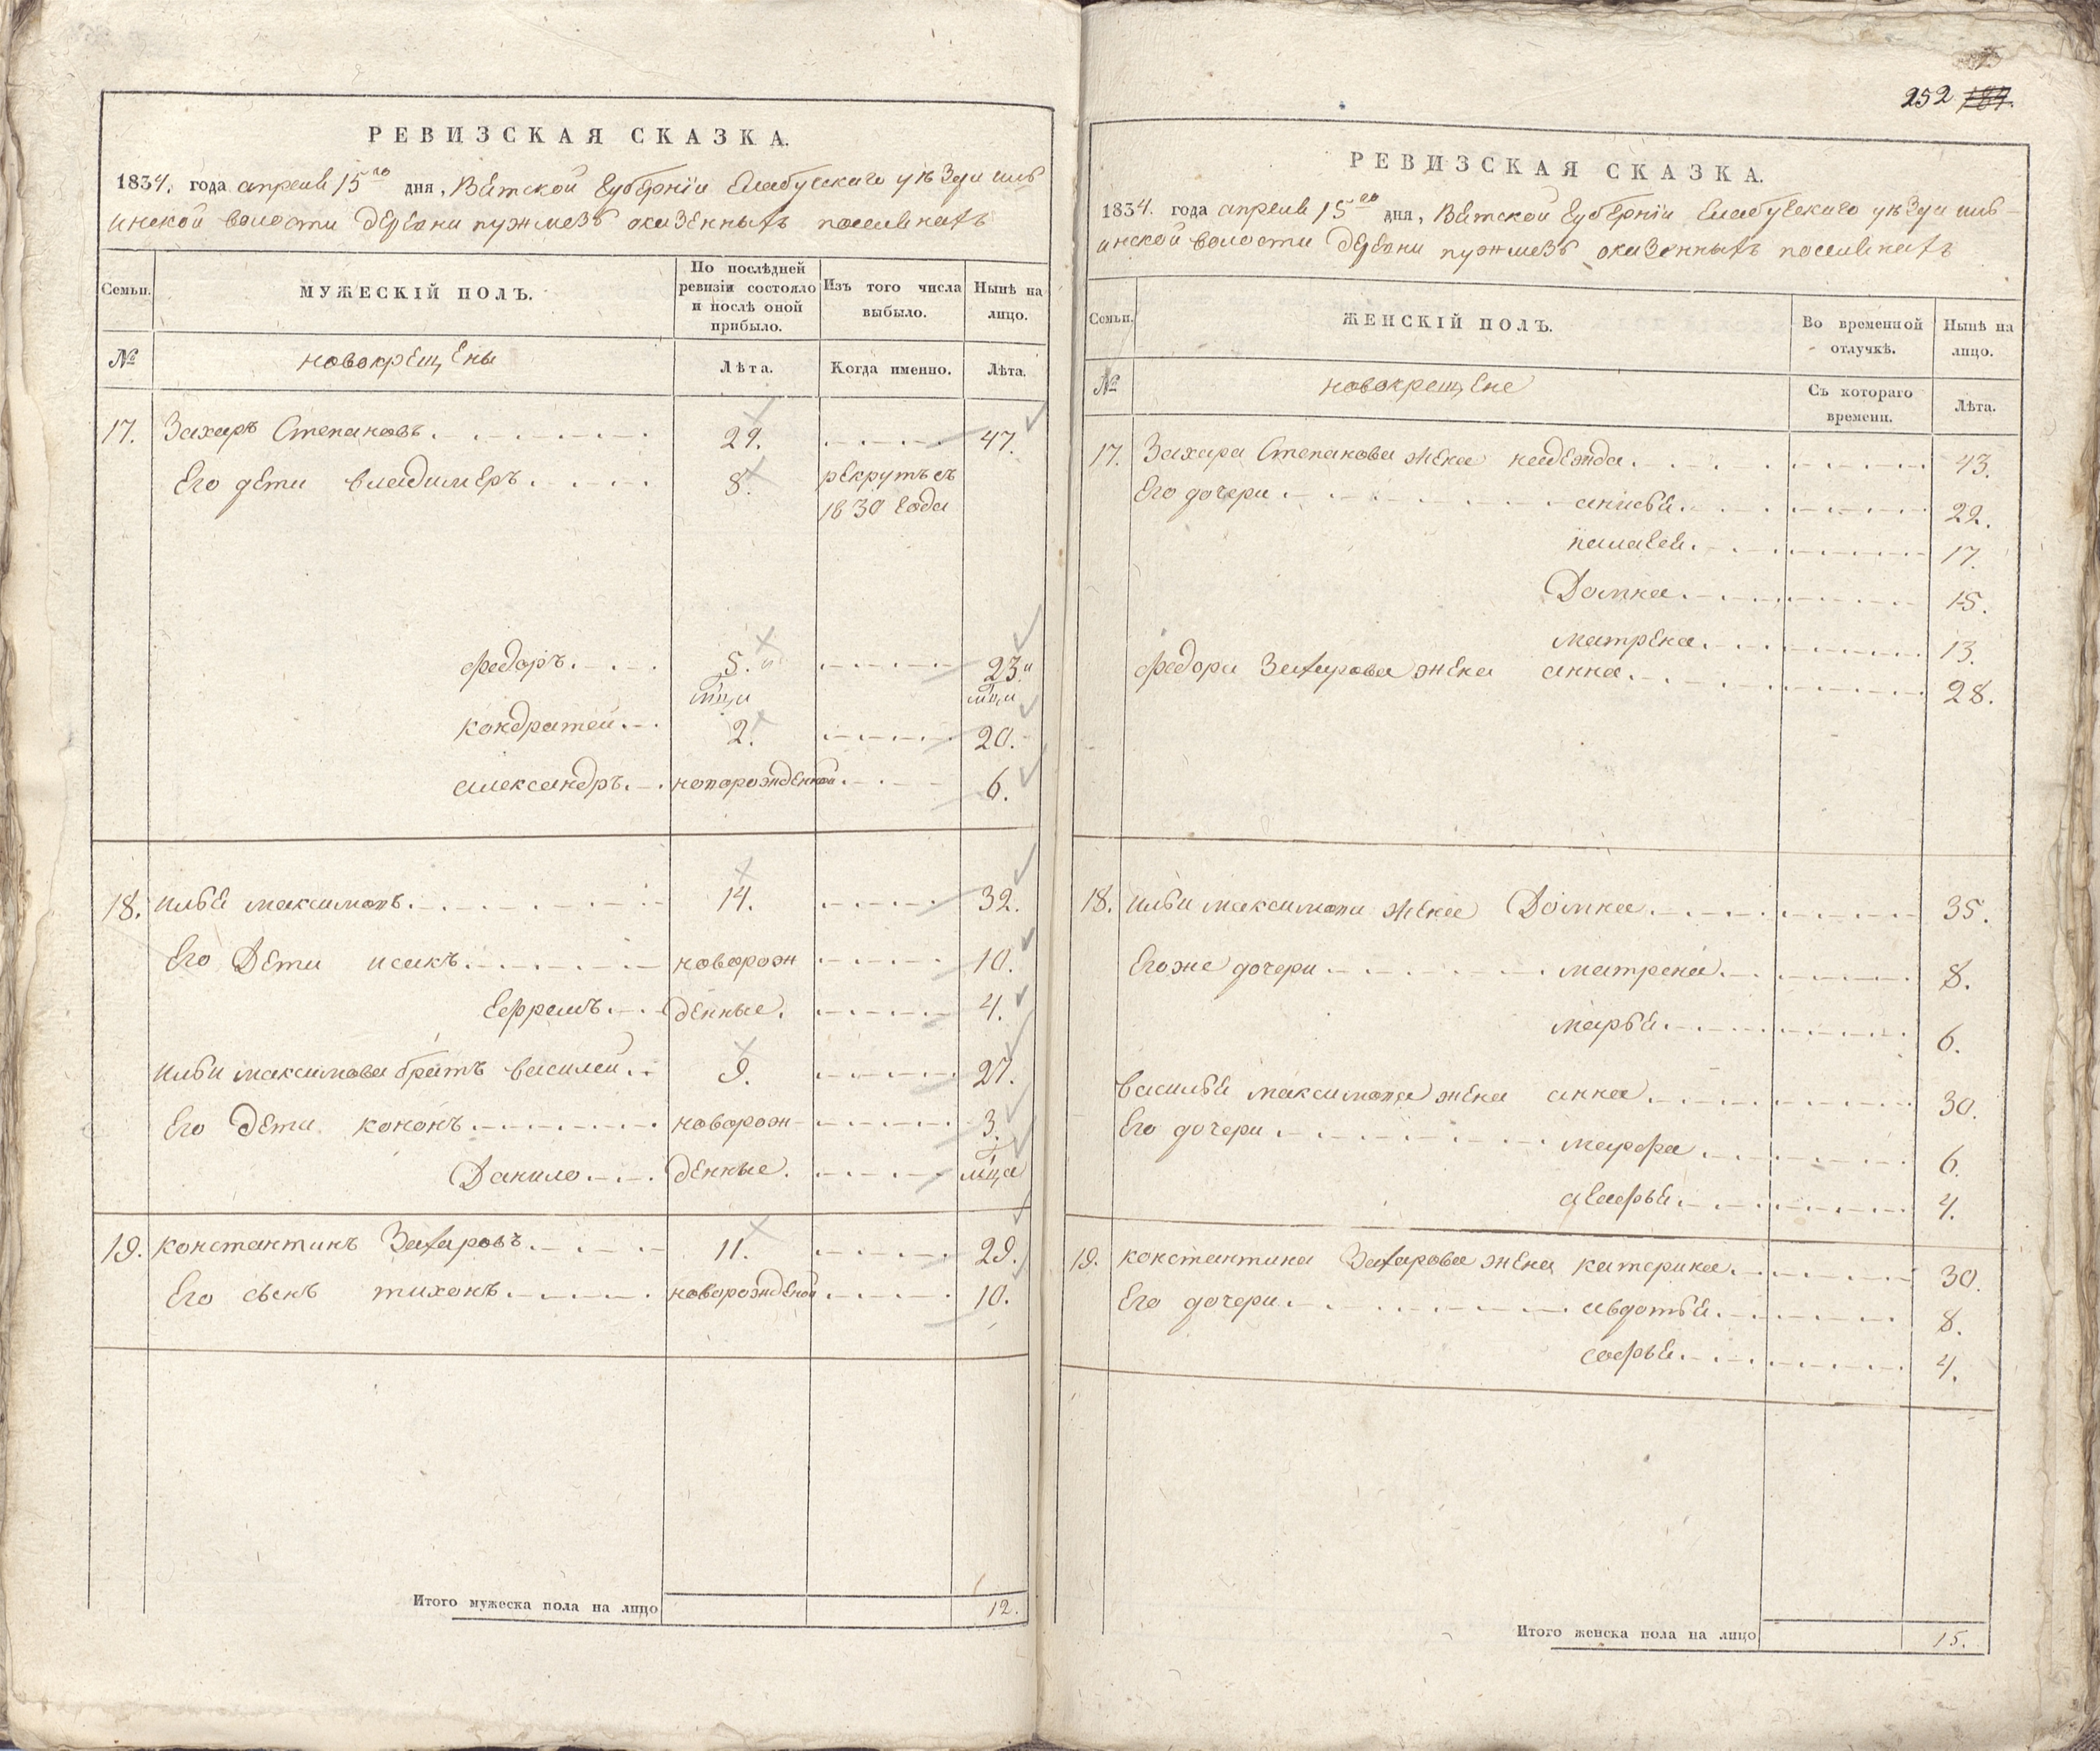 РЕВИЗСКАЯ СКАЗКА.
1834. года апреля 15го дня, Вятской губернии Елабугскаго уезда иль
инской волости деревни пужмезь оказенныхъ поселянахъ
Семьи.
МУЖЕСКІЙ ПОЛЪ.
По послѣдней ревизіи состояло и послѣ оной прибыло.
Изъ того числа выбыло.
Нынѣ на лицо.
№
новокрещены
Лѣта.
Когда именно.
Лѣта.
17. Захаръ Степановъ. 29. 47.
Его дети владимеръ. 8. рекрутъ съ
1830 года
федоръ. 5.½ 23½
мца мца
кондратей. 2. 20.
александръ. новорожденной. 6.
18. илья максимовъ. 14. 32.
Его Дети исакъ. новорож 10.
Ефремъ. денные. 4.
ильи максимова братъ василей. 9. 27.
Его дети кононъ. новорож- 3.
Данило. денные. мца
19. константинъ Захаровъ. 11. 29.
Его сынъ тихонъ. новорожденой 10.
Итого мужеска пола на лицо 12.
252 187.
РЕВИЗСКАЯ СКАЗКА.
1834. года апреля 15го дня, Вятской губернии Елабугскаго уезда иль-
инской волости деревни пужмезь оказенныхъ поселянахъ
Семьи.
ЖЕНСКІЙ ПОЛЪ.
Во временной отлучкѣ.
Нынѣ на лицо.
№
новокрещене
Съ котораго времени.
Лѣта.
17. Захара Степанова жена надежда. 43.
Его дочери. анисья. 22.
палагея. 17.
Домна. 15.
матрена. 13.
федора Захарова жена анна. 28.
18. ильи максимова жена Домна. 35.
Егоже дочери матрена. 8.
марья. 6.
василья максимова жена анна. 30.
Его дочери. марфа. 6.
агафья. 4.
19. константина Захарова жена катерина. 30.
Его дочери. авдотья. 8.
софья. 4.
Итого женска пола на лицо 15.